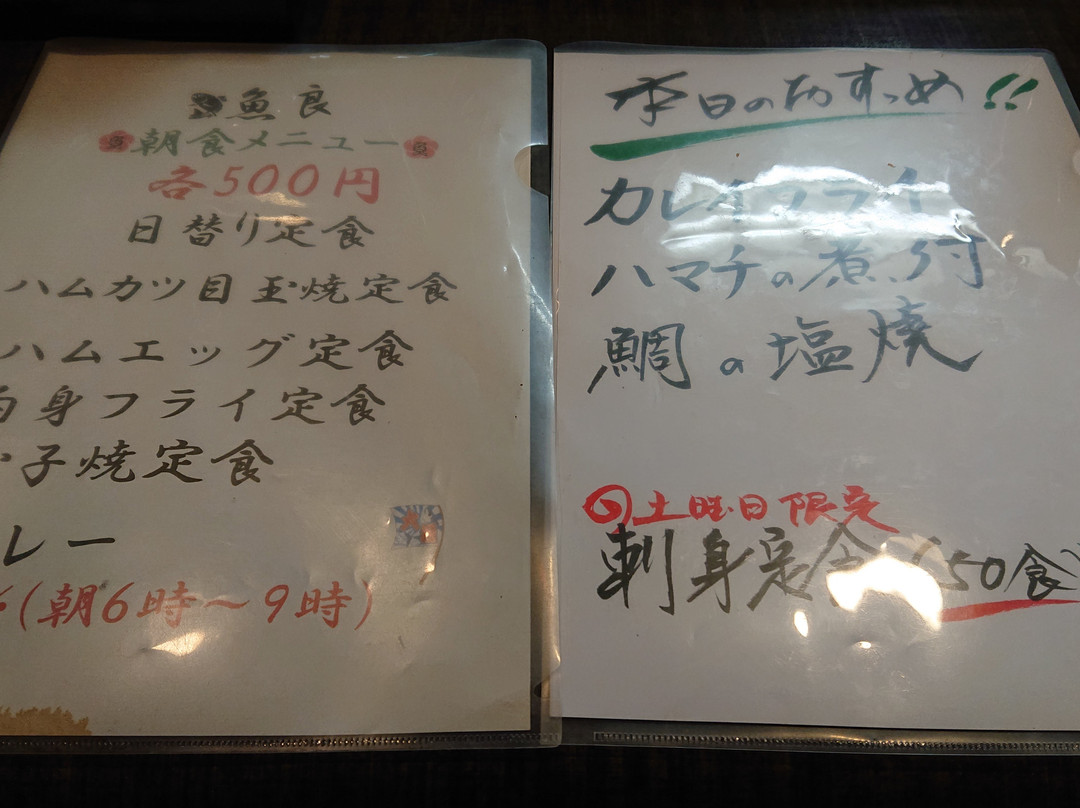 魚良
朝食メニュー
各500円
日替り定食
ハムカツ目玉焼定食
ハムエッグ定食
白身フライ定食
子焼定食
レー
(朝6時〜9時)
本日のおすすめ!!
カレイフライ
ハマチの煮付
鯛の塩焼
土曜日限定
刺身定食(50食)